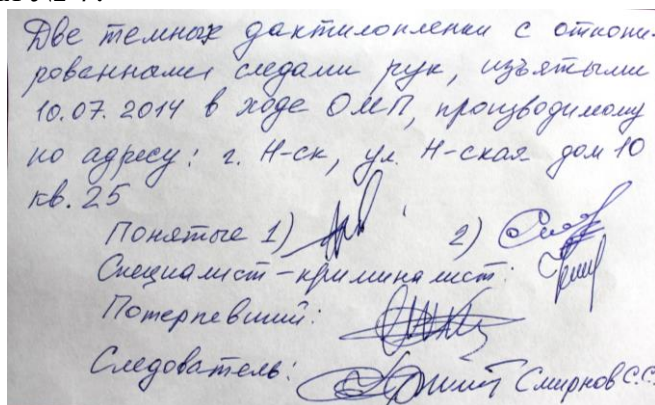 Две темных дактилопленки с откопи-
рованными следами рук, изъятыми
10.07.2014 в ходе ОМП, производимому
по адресу: г. Н-ск, ул. Н-ская дом 10
кв. 25
Понятые 1) 2)
Специалист-криминалист:
Потерпевший:
Следователь: Смирнов С.С.